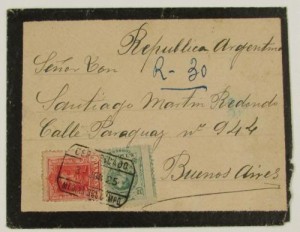 Republica Argentina
Señor Don
R-30
Santiago Martin Redondo
Calle Paraguay nº 944
Buenos Aires